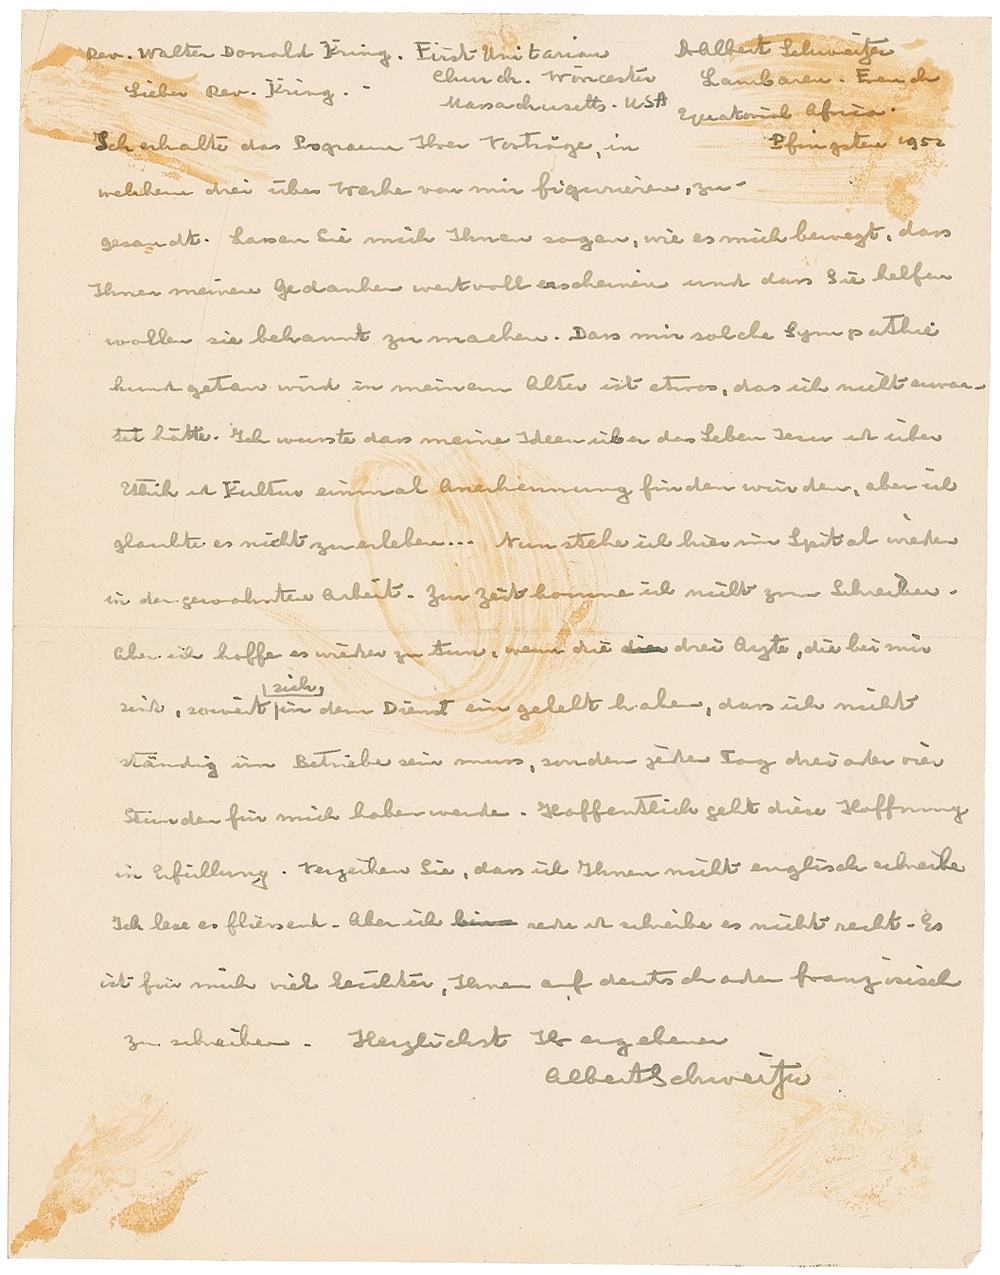 Rev. Walter Donald Kring. First Unitarian
Church. Worcester
Massachusetts. USA
Dr Albert Schweitzer
Lambarene. French
Equatorial Africa.
Pfingsten 1952
Lieber Rev. Kring. -
Ich erhalte das Program Ihrer Vorträge, in
welchem drei über Werke von mir figurieren, zu-
gesandt. Lassen Sie mich Ihnen sagen, wie es mich bewegt, dass
Ihnen meine Gedanken wertvoll erscheinen und dass Sie helfen
wollen sie bekannt zu machen. Dass mir solche Sympathie
kund getan wird in meinem Alter ist etwas, das ich nicht erwar-
tet hätte. Ich wusste dass meine Ideen über das Leben Jesu et über
Ethik et Kultur einmal Anerkennung finden würden, aber ich
glaubte es nicht zu erleben... Nun stehe ich hier im Spital wieder
in der gewohnten Arbeit. Zur Zeit komme ich nicht zum Schreiben.
Aber ich hoffe es wieder zu tun, wenn die drei Ärzte, die bei mir
sind, soweit sich in dem Dienst ein gelebt haben, dass ich nicht
ständig im Betriebe sein muss, sondern jeden Tag drei oder vier
Stunden für mich haben werde. Hoffentlich geht diese Hoffnung
in Erfüllung. Verzeihen Sie, dass ich Ihnen nicht englisch schreibe
Ich lese es fliessend. Aber ich rede et schreibe es nicht recht. Es
ist für mich viel leichter, Ihnen auf deutsch oder französisch
zu schreiben. Herzlichst Ihr ergebener
Albert Schweitzer